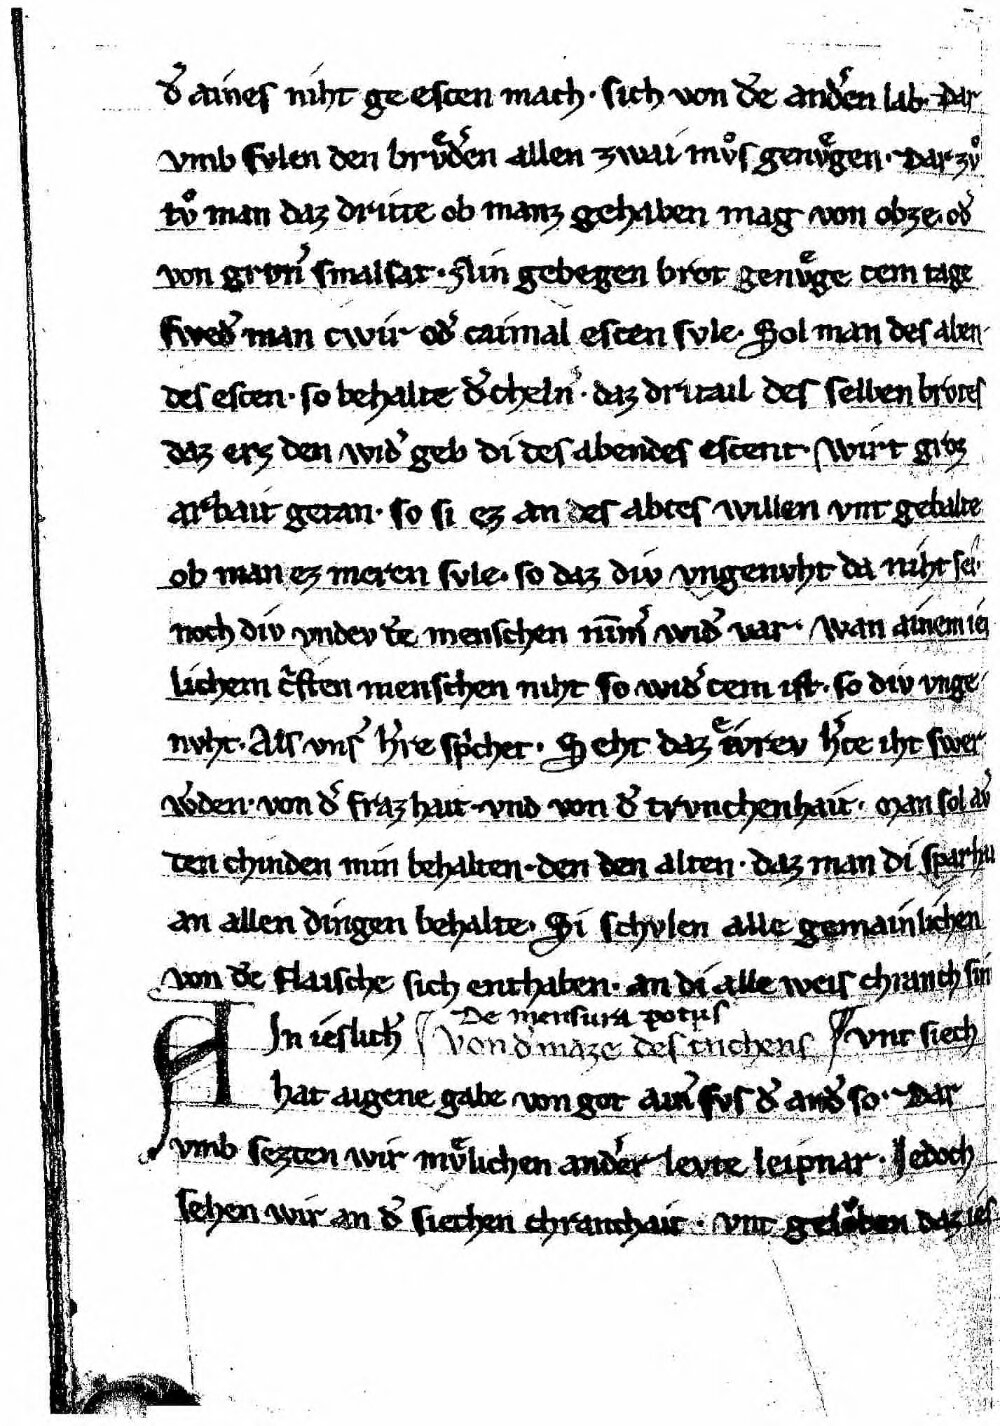 dˢ aines niht ge escen mach · sich von dˢe andˢen lab · Dar
vmb svlen den brvͤdˢen allen zwai mvͦs genvͤgen · Dar zvͦ
tvͦ man daz dritte ob manz gehaben mag von obze · odˢ
von grvnˢ smalsat · Ain gebegen brot genvͤge cem tage
swedˢ man cwir odˢ caimal escen svle · Sol man des aben
des escen · so behalte dˢ chelnˢ · daz dritail des selben brotes
daz erz den widˢ geb di des abendes escent · wirt groz
arbait getan · so si ez an des abtes willen vnt gebalte
ob man ez meren svle · so daz div vngenvht da niht sei ·
noch div vndev dˢe menschen nimˢ widˢ var · wan ainem iei
lichem cˢsten menschen niht so widˢcem ist · so div vnge
nvht · Als vnsˢ hˢre spˢchet · Seht daz ivͤrev hˢce iht swer
wˢden · von dˢ frazhait · vnd von dˢ trvnchenhait · Man sol avˢ
ten chinden min behalten · den den alten · daz man di sparhu
an allen dingen behalte · Si schvlen alle gemainlichen
von dˢe flaische sich enthaben · an di alle weis chranch sin
De mensura potus
Ain ieslichˢ von dˢ maze des trichens vnt siech
hat aigene gabe von got ainˢ svs dˢ andˢ so · Dar
vmb sezten wir mvͤlichen andˢer levte leipnar · Jedoch
sehen wir an dˢ siechen chranchait · vnt geloͮben daz ies